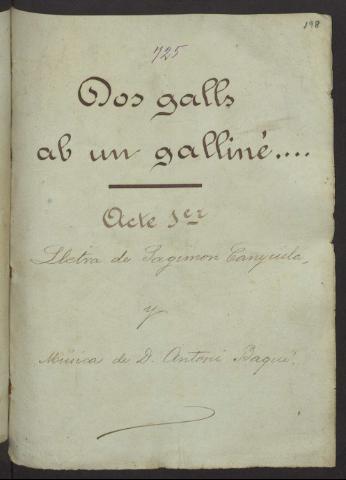 198
725
Dos galls
ab un galliné....
Acte 1er
Lletra de Sagimon Canyiula,
y
Música de D. Antoni Baqué.